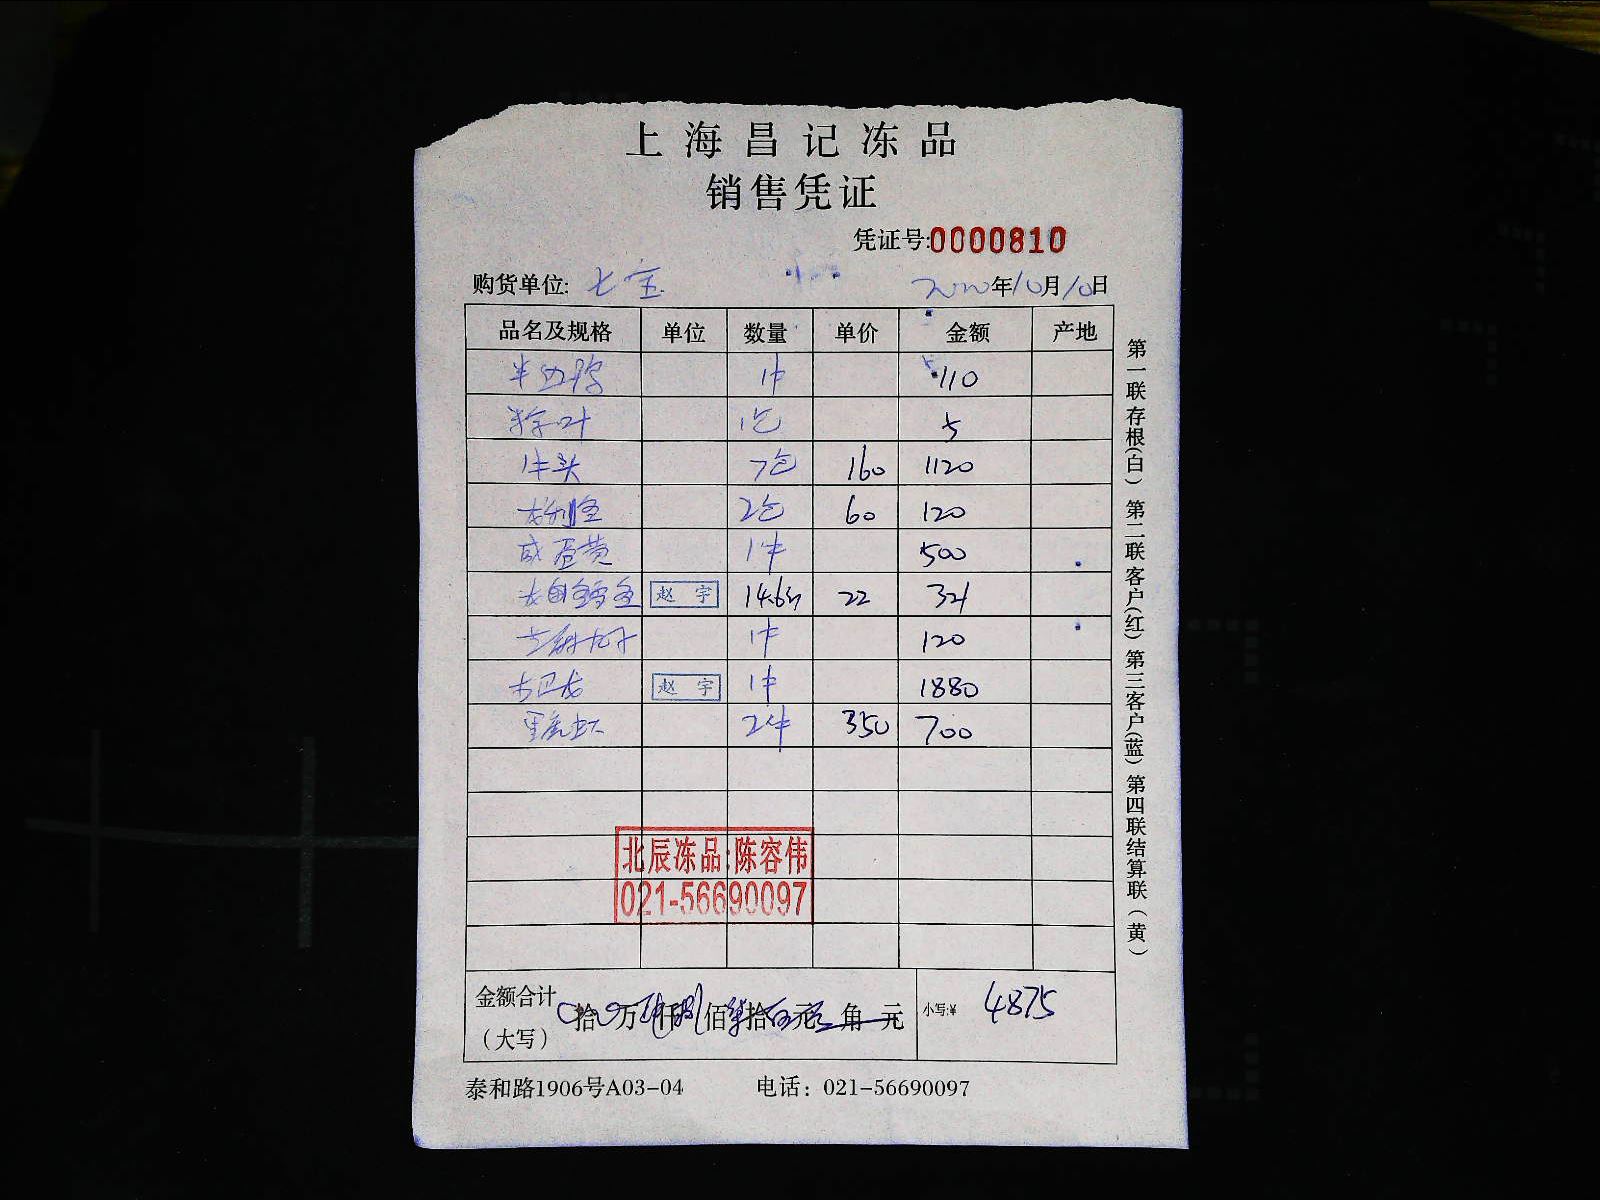 上海昌记冻品
销售凭证
凭证号:0000810
购货单位: 七宝 2020年10月10日
品名及规格 单位 数量 单价 金额 产地
半边鸭 1件 110
粽叶 1包 5
牛头 7包 160 1120
龙利鱼 2包 60 120
咸蛋黄 1件 500
赵宇 14.6斤 22 321
1件 120
赵宇 1件 1880
黑虎虾 2件 350 700
北辰冻品:陈容伟
021-56690097
金额合计
(大写)
拾 万 仟 佰 拾 元 角 元 小写:¥ 4875
泰和路1906号A03-04 电话: 021-56690097
第一联存根(白) 第二联客户(红) 第三客户(蓝) 第四联结算联(黄)